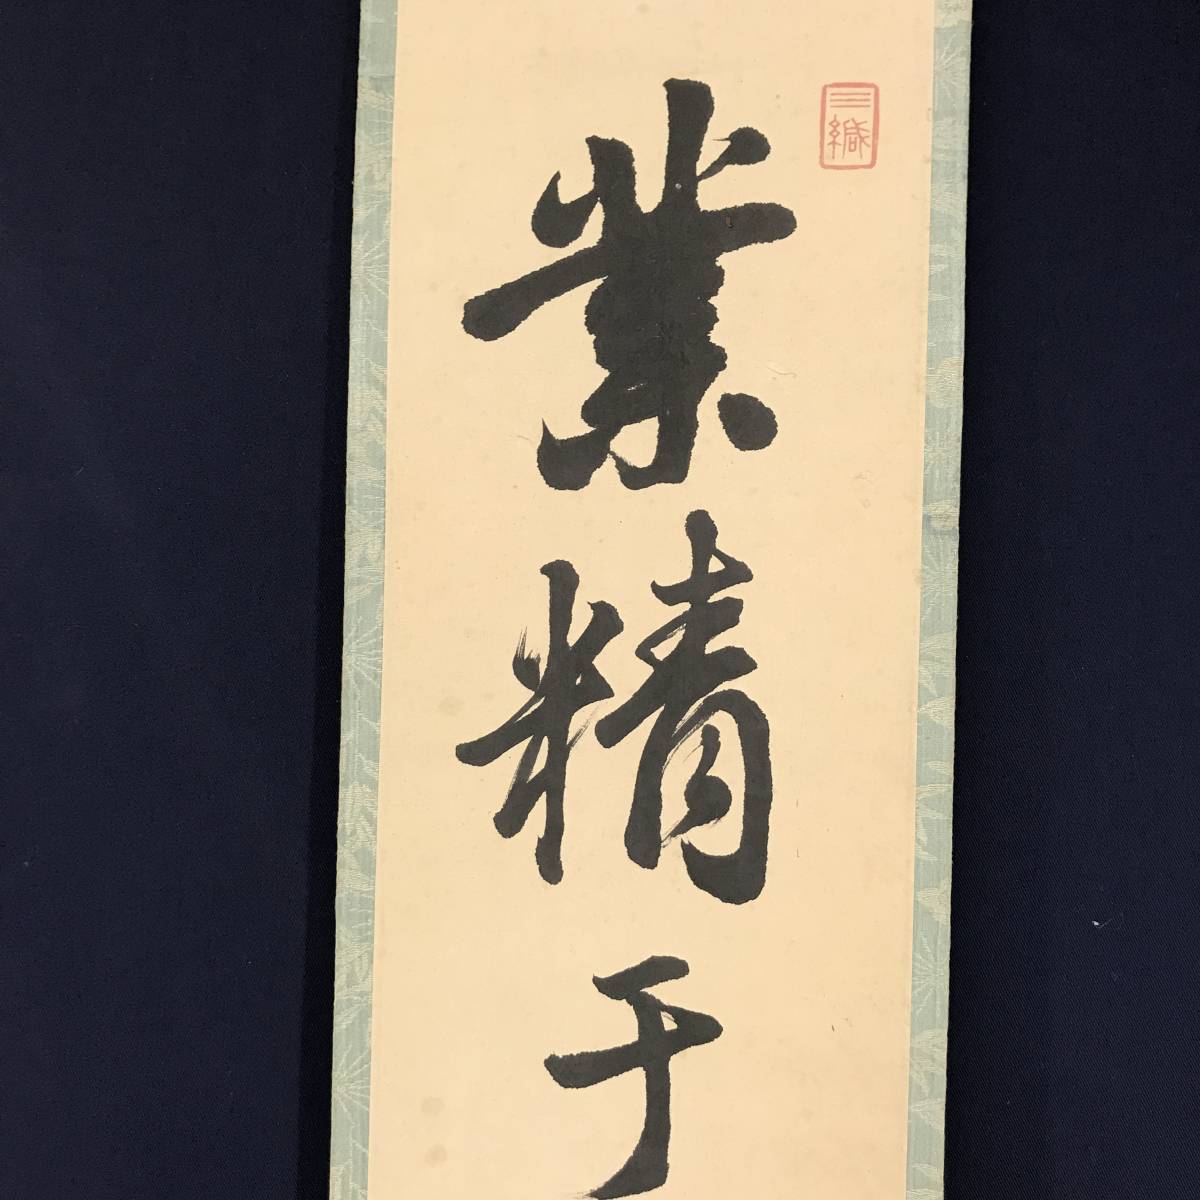 三緘
業精于